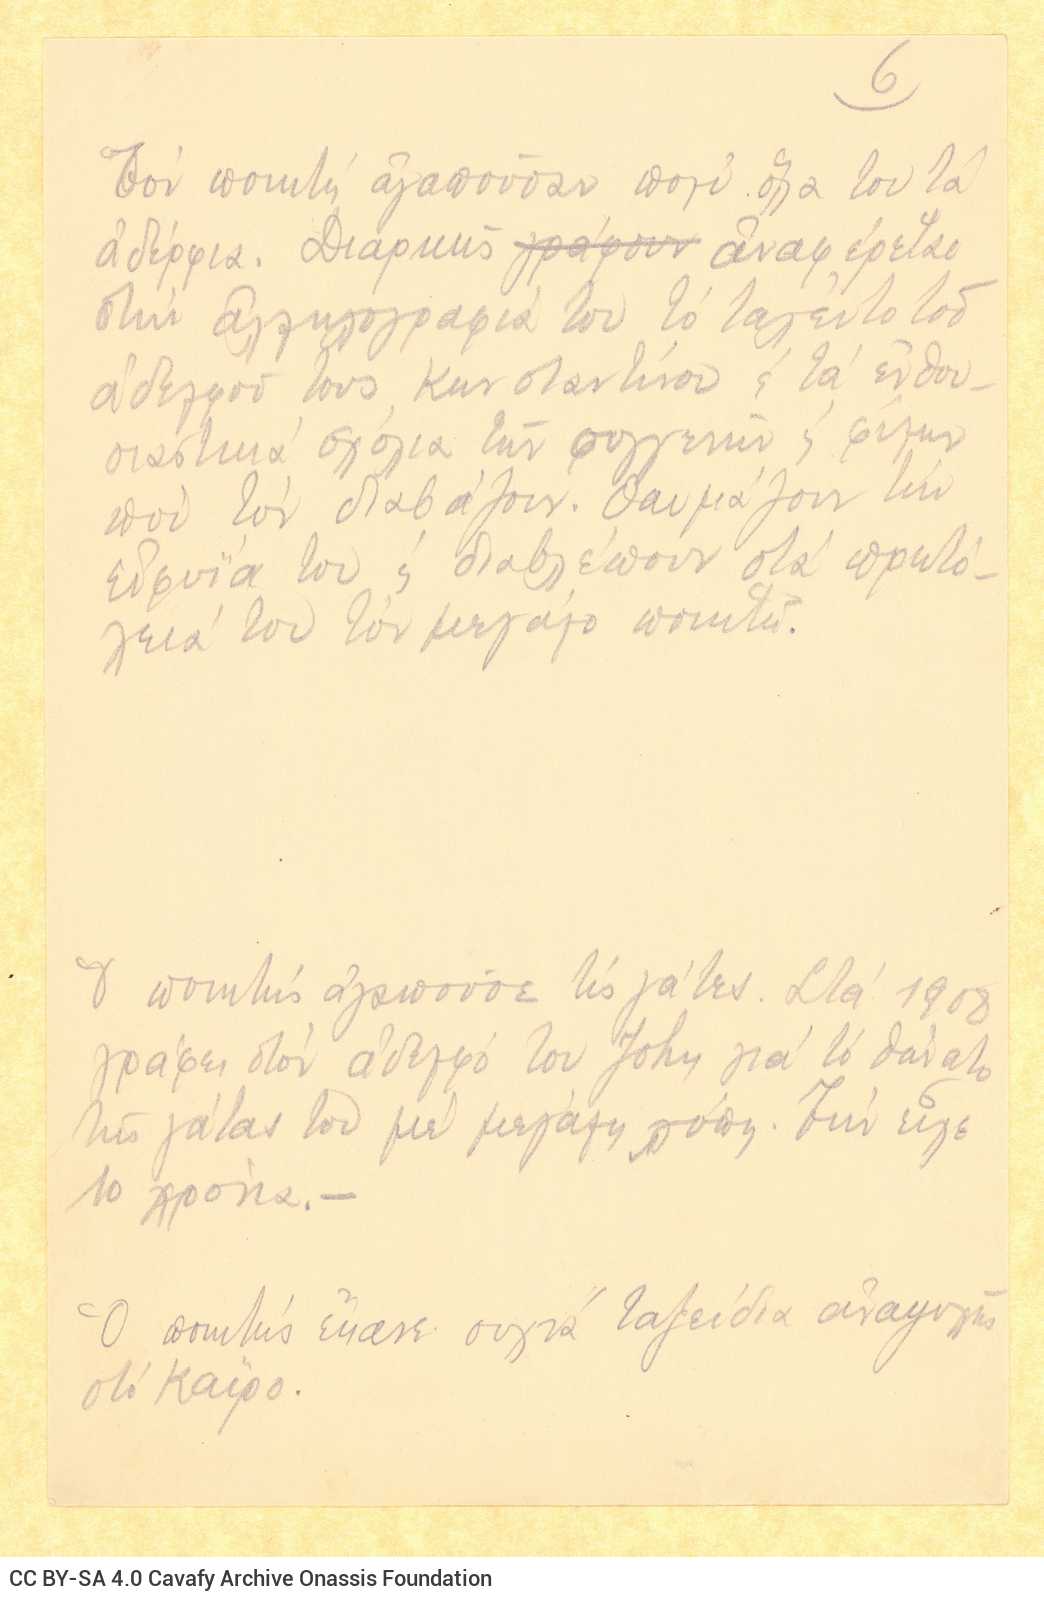 6
Τὸν ποιητὴ ἀγαποῦσαν πολὺ ὅλα του τὰ
ἀδέρφια. Διαρκῶς γράφουν ἀναφέρεται
στὴν ἀλληλογραφία του τὸ ταλέντο τοῦ
ἀδελφοῦ τους Κωνσταντίνου ϗ τὰ ἐνθου-
σιαστικὰ σχόλια τῶν συγγενῶν ϗ φίλων
ποὺ τὸν διαβάζουν. Θαυμάζουν τὴν
εὐφυΐα του ϗ διαβλέπουν στὰ πρωτό-
λειά του τὸν μεγάλο ποιητῆ.
Ὁ ποιητὴς ἀγαποῦσε τὶς γάτες. Στὰ 1908
γράφει στὸν ἀδελφό του John γιὰ τὸ θάνατο
τῆς γάτας του μὲ μεγάλη λύπη. Τὴν εἶχε
10 χρόνια.—
Ὁ ποιητὴς ἔκανε συχνὰ ταξείδια ἀναψυχῆς
στὸ Κάϊρο.
CC BY-SA 4.0 Cavafy Archive Onassis Foundation